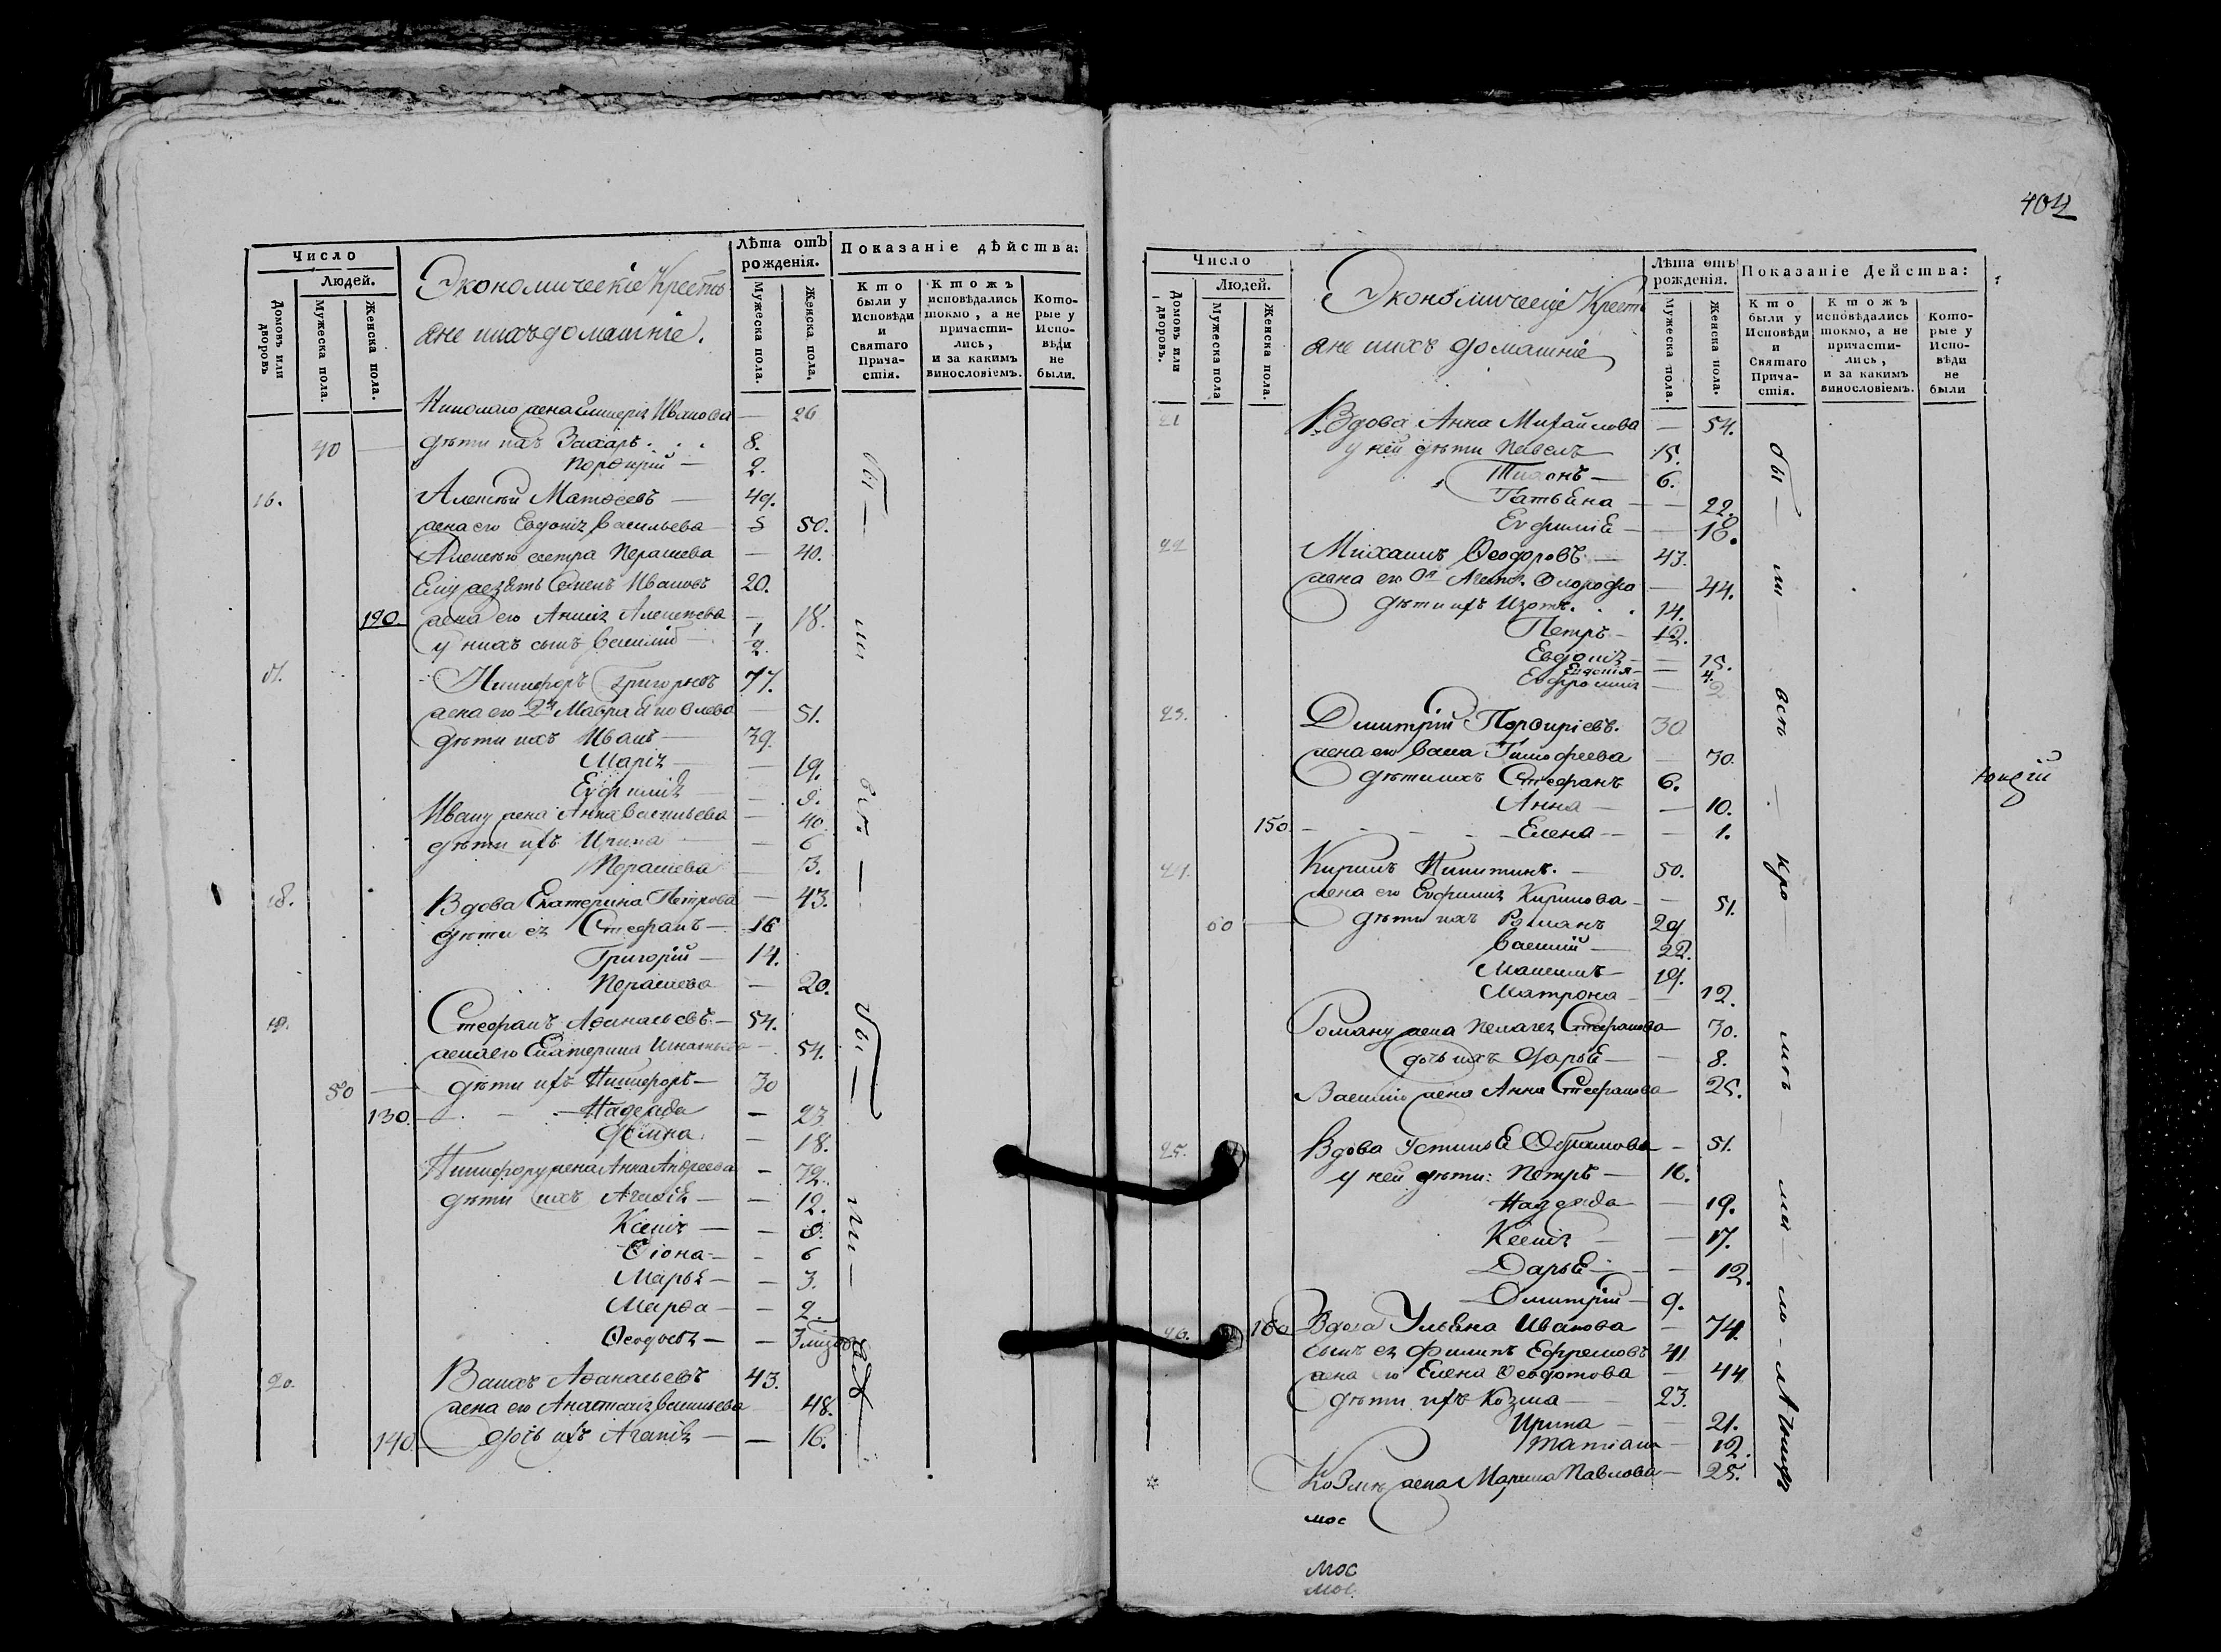 Число
Людей.
Домовъ или дворовъ
Мужеска пола.
Женска пола.
Экономическіе Крестья
ане ихъ домашніе.
Лѣта отъ рожденія.
Мужеска пола.
Женска пола.
Показаніе дѣйства:
Кто были у Исповѣди и Святаго Причастія.
Ктожъ исповѣдались токмо, а не причастились, и за какимъ винословіемъ.
Которые у Исповѣди не были.
Николаю жена Иванова — 26
40 — дѣти ихъ Захаръ . . . 8.
Порфирій — 2.
16. Алексѣй Матѳеевъ — 49.
жена его Евдокія Васильева — 50.
Алексѣю сестра Парасковія — 40.
Ему зять Семенъ Ивановъ 20.
120. жена его Алексѣева — 18.
у нихъ сынъ Василій — 2
Никифоръ Григорьевъ 77.
жена его 2я Мавра — 51.
дѣти ихъ Иванъ — 39.
Марія — 19.
Евфимія — 9.
Ивану жена Анна Васильева — 40.
дѣти ихъ Ирина — 6
Парасковія — 3.
18. Вдова Екатерина Петрова — 43.
дѣти ея Стефанъ — 16
Григорій — 14.
Парасковія — 20.
19. Стефанъ Аѳанасьевъ — 54.
жена его Екатерина Игнатьева — 54.
50 — дѣти ихъ Никифоръ — 30
130. — Надежда — 23
18.
Никифору жена Анна Андреева — 32.
дѣти ихъ Агаѳія — 12.
Ксенія — 8.
6
Марья — 3.
Марѳа — 2.
Ѳеодосія —
20. Аѳанасьевъ 43.
жена его Анастасія Васильева 48.
140. дочь ихъ Агаѳія — 16.
бы — ли всѣ — бы — ли
404
Число
Людей.
Домовъ или дворовъ.
Мужеска пола
Женска пола.
Экономическіе Крестья
ане ихъ домашніе
Лѣта отъ рожденія.
Мужеска пола.
Женска пола.
Показаніе Действа:
Кто были у Исповѣди и Святаго Причастія.
Ктожъ исповѣдались токмо, а не причастились, и за какимъ винословіемъ.
Которые у Исповѣди не были
21 Вдова Анна Михайлова — 54.
у ней дѣти Павелъ 15.
Тихонъ — 6.
Татьяна — 22.
Евфимія — 18.
22 Михаилъ Ѳеодоровъ — 43.
жена его — 44.
дѣти ихъ Изотъ . . 14.
Петръ — 12.
Евдокія — 15.
Евдокія — 4.
Евфросинія — 2
23. Дмитрій Порфиріевъ. 30
жена его Васса Тимофеева — 30.
дѣти ихъ Стефанъ 6.
Анна — 10.
150. — Елена — 1.
24. Кирилъ Никитинъ. — 50.
жена его Евфимія Кирилова — 51.
60 — дѣти ихъ Романъ 29
Василій — 22.
Максимъ — 19.
Матрона — 12.
Роману жена Пелагея Стефанова 30.
дочь ихъ Дарья — 8.
Василію жена Анна Стефанова 25.
25. Вдова Устинья — 51.
у ней дѣти: Петръ — 16.
Надежда — 19.
Ксенія — 17.
Дарья — 12.
Дмитрій — 9.
26. 160 Вдова Ульяна Иванова — 74.
сынъ ея Филипъ Ефремовъ 41
жена его Елена Ѳеодотова — 44
дѣти ихъ Козма — 23.
Ирина — 21.
Татіана — 12.
Козмѣ жена Марина Павлова — 25.
мос
мос
мос
бы — ли — всѣ — кро — мѣ — ма — ло — лѣтнихъ